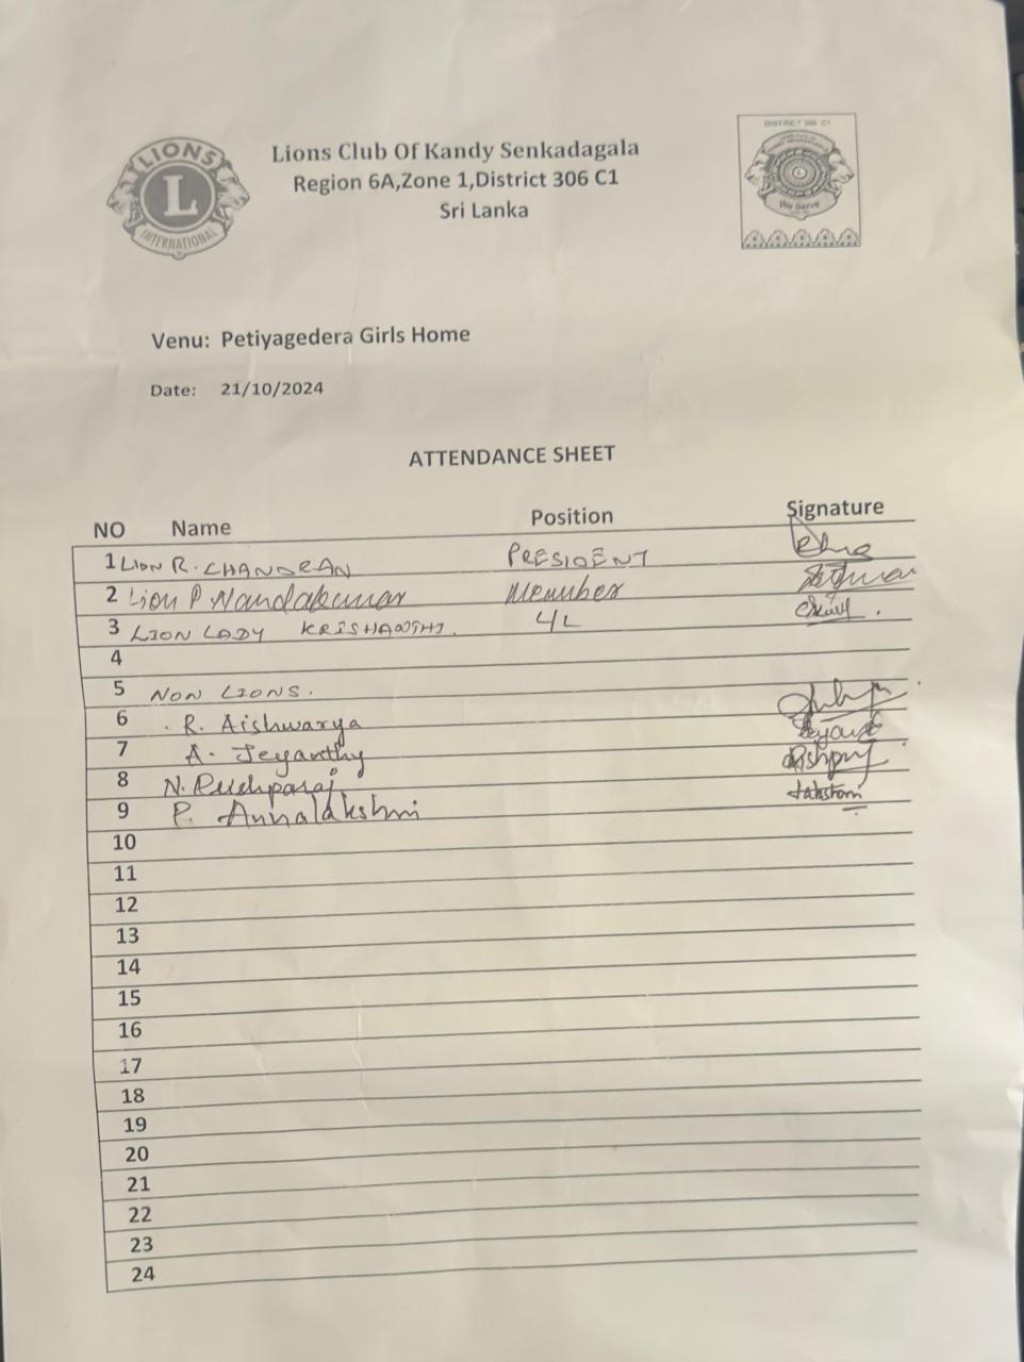 LIONS
L
INTERNATIONAL
Lions Club Of Kandy Senkadagala
Region 6A,Zone 1,District 306 C1
Sri Lanka
DISTRICT 306 C1
We Serve
Venu: Petiyagedera Girls Home
Date: 21/10/2024
ATTENDANCE SHEET
NO Name Position Signature
1 LION R. CHANDRAN PRESIDENT
2 Lion P Nandakumar Member
3 LION LADY KRISHANTHI.
4
5 NON LIONS.
6 R. Aishwarya
7 A. Jeyanthy
8 N. Pushparaj
9 P. Annalakshmi
10
11
12
13
14
15
16
17
18
19
20
21
22
23
24